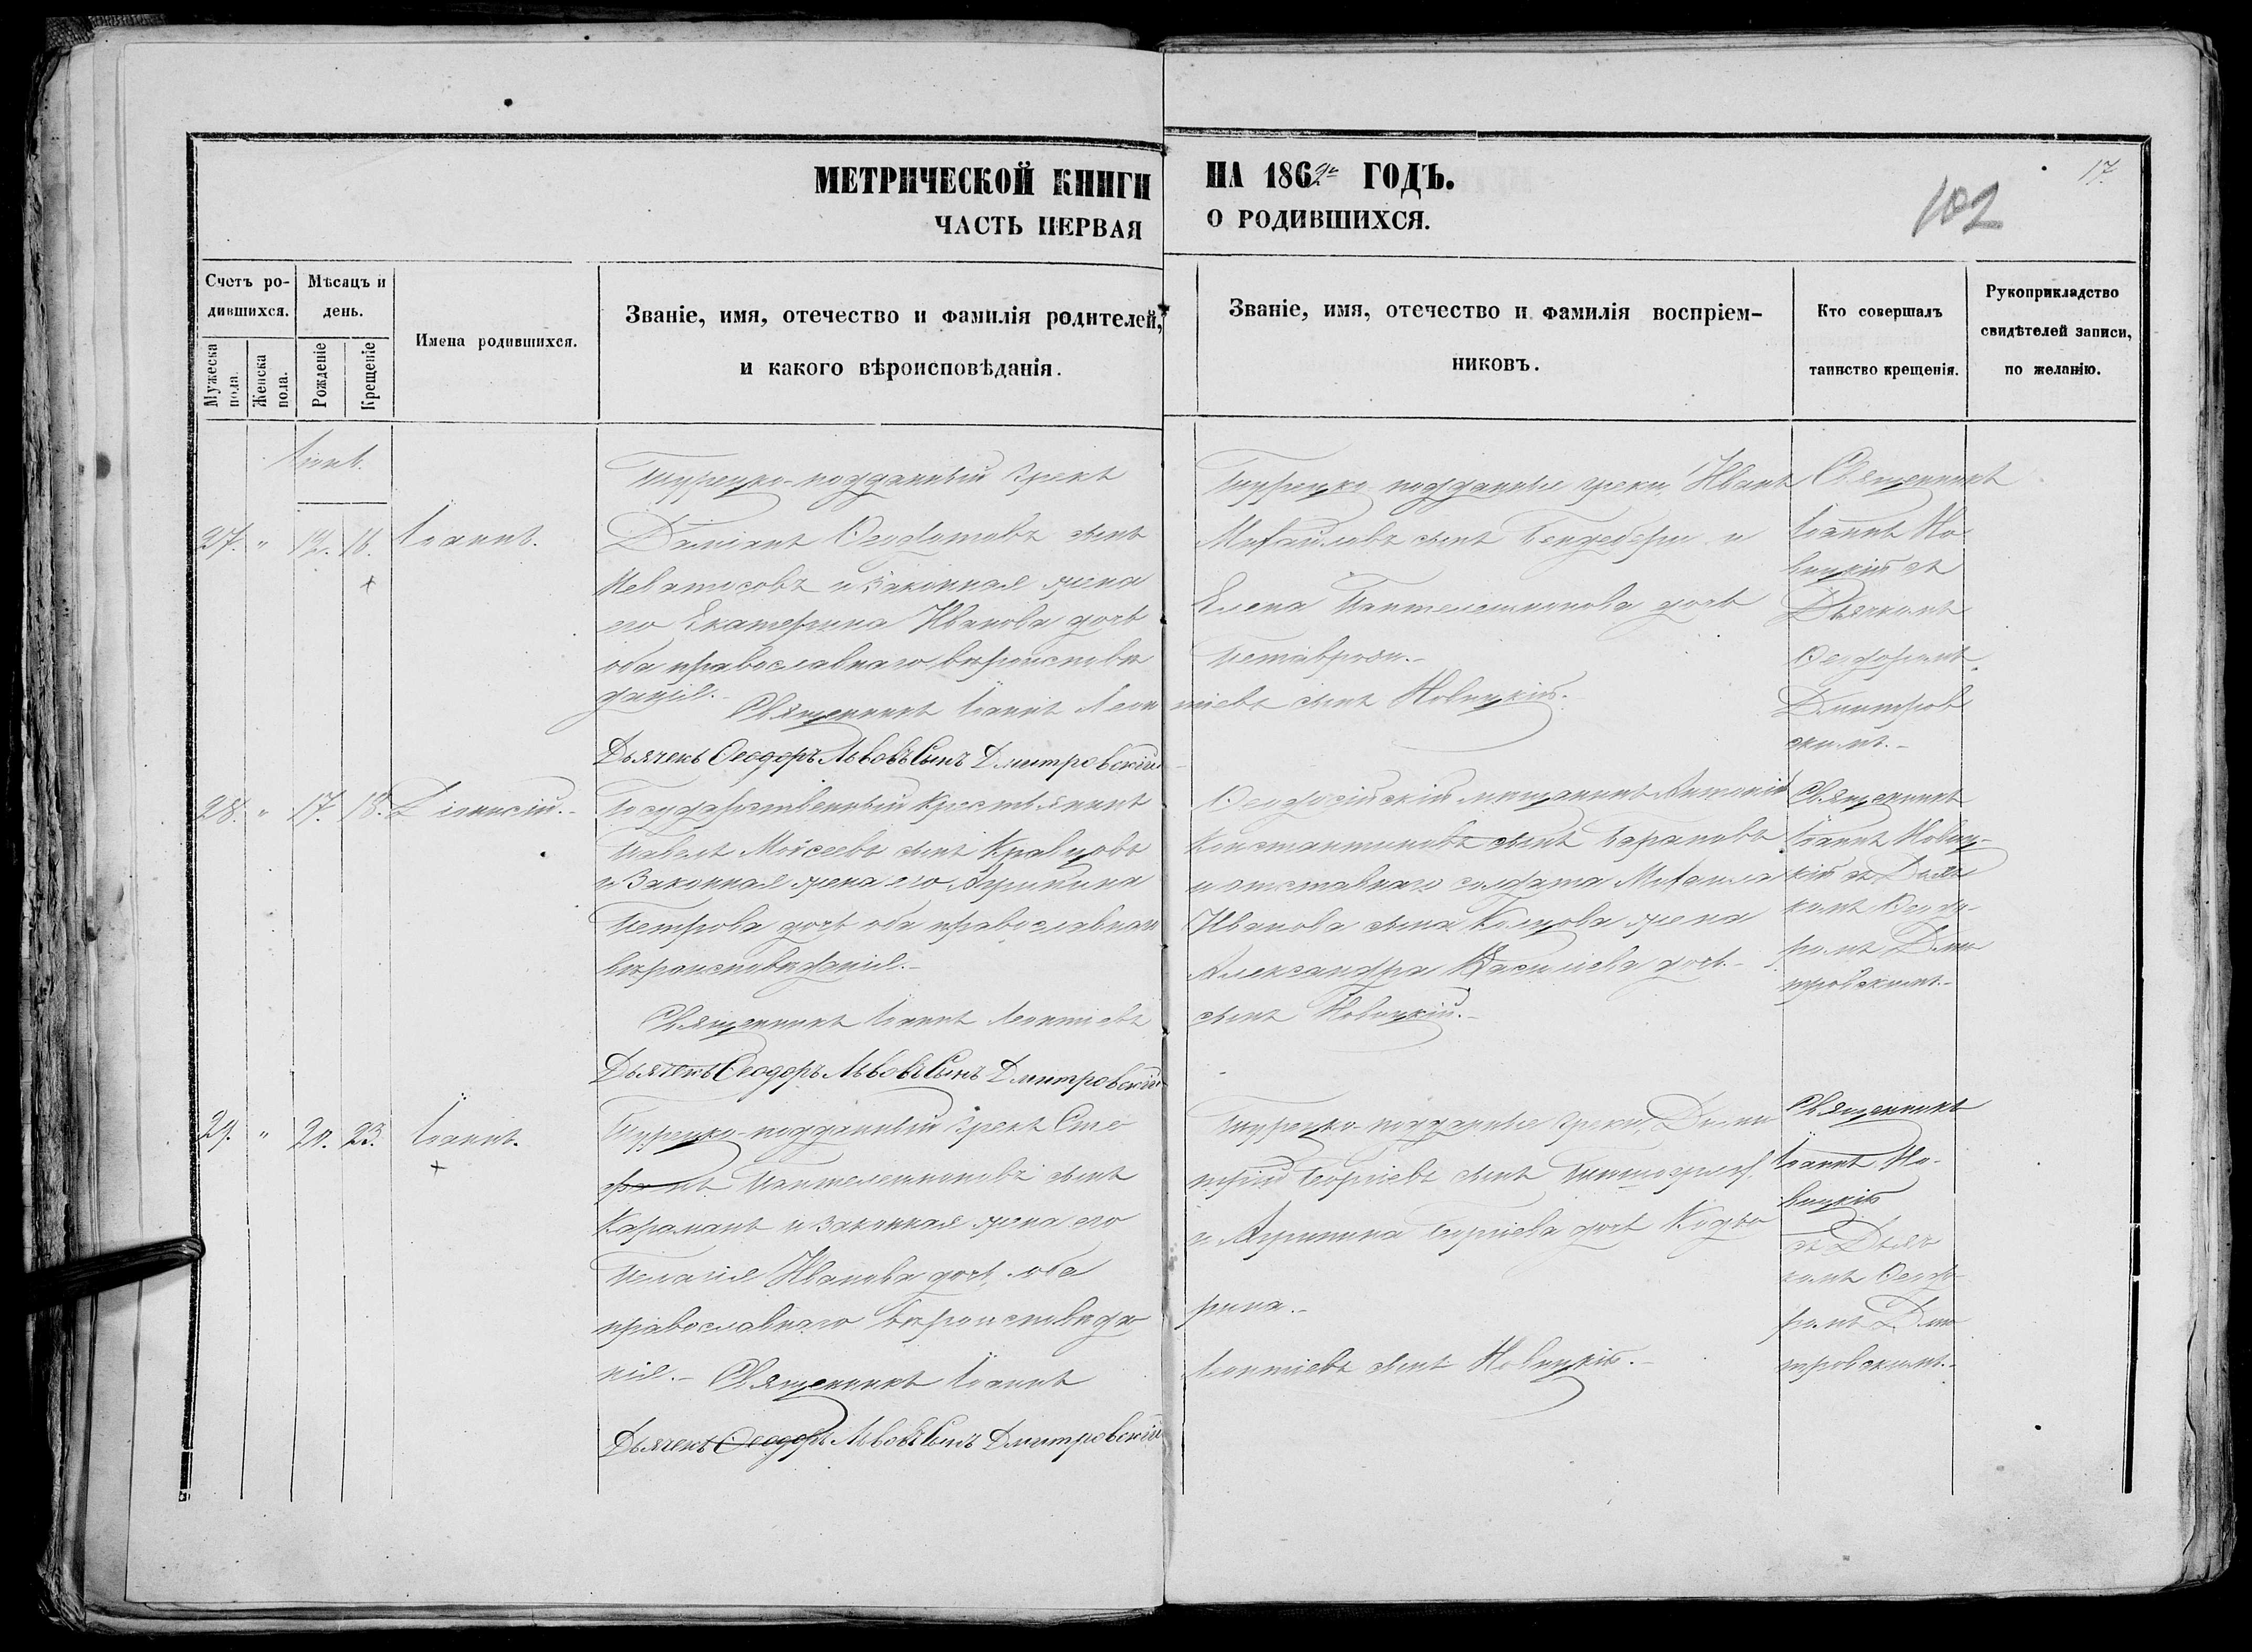 МЕТРИЧЕСКОЙ КНИГИ
НА 1862 ГОДЪ.
17.
102
ЧАСТЬ ПЕРВАЯ
О РОДИВШИХСЯ.
Счетъ ро-
дившихся.
Мужеска пола.
Женска пола.
Мѣсяцъ и
день.
Рожденіе
Крещеніе
Имена родившихся.
Званіе, имя, отечество и фамилія родителей,
и какого вѣроисповѣданія.
Званіе, имя, отечество и фамилія воспріем-
никовъ.
Кто совершалъ
таинство крещенія.
Рукоприкладство
свидѣтелей записи,
по желанію.
27. " 12. 18. Іоаннъ.
Турецко-подданный Грекъ
Даміанъ Ѳеодотовъ сынъ
и законная жена
его Екатерина Иванова дочь
оба православнаго вѣроисповѣ
данія.-
Священникъ Іоаннъ Леон
Дьячекъ Ѳеодоръ Львовъ Сынъ Дмитровскій
Турецко подданные греки, Иванъ
Михайловъ сынъ и
Елена Пантелеимонова дочь
тіевъ сынъ Новицкій.
Священникъ
Іоаннъ Но
вицкій съ
Дьячкомъ
Ѳеодоромъ
Дмитров
скимъ.-
28. " 17. 18. Діонисій.-
Государственный Крестьянинъ
Павелъ Мойсеевъ сынъ Кравцовъ
и Законная жена его Агрипина
Петрова дочь оба православнаго
вѣроисповѣданія.-
Священникъ Іоаннъ Леонтіевъ
Дьячекъ Ѳеодоръ Львовъ Сынъ Дмитровскій
Ѳеодосійскій мещанинъ Антоній
Константиновъ сынъ Барановъ
и отставнаго солдата Михаила
Иванова сына жена
Александра Василіева дочь.-
сынъ Новицкій.-
Священникъ
Іоаннъ Новиц-
кій съ Дьяч
комъ Ѳеодо-
ромъ Дми
тровскимъ.-
29. " 20. 23. Іоаннъ.
Турецко-подданный Грекъ Сте
фанъ Пантелеимоновъ сынъ
Караманъ и законная жена его
Пелагія Иванова дочь, оба
православнаго вѣроисповѣда
нія.- Священникъ Іоаннъ
Дьячекъ Ѳеодоръ Львовъ Сынъ Дмитровскій
Турецко-подданные Греки, Дими
трій Георгіевъ сынъ
и Агрипина Георгіева дочь
рина.-
Леонтіевъ сынъ Новицкій.-
Священникъ
Іоаннъ Но-
вицкій
съ Дьяч
комъ Ѳеодо-
ромъ Дми
тровскимъ.-